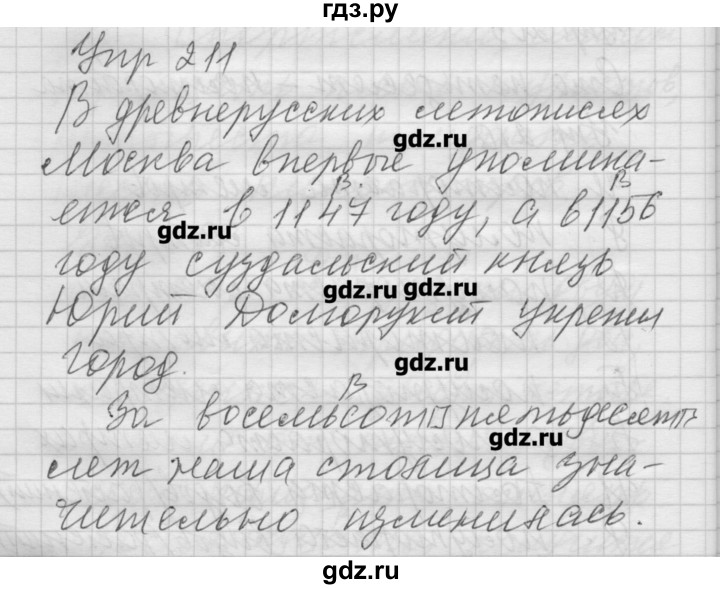 гдз.ру
Упр 211
В древнерусских летописях
gdz.ru
Москва впервые упомина-
В. В
ется в 1147 году, а в 1156
gdz.ru
году суздальский князь
gdz.ru gdz.ru
Юрий Долгорукий укрепил
город.
gdz.ru
В
За восемьсот□ пятьдесят□
gdz.ru
лет наша столица зна-
чительно изменилась.
gdz.ru